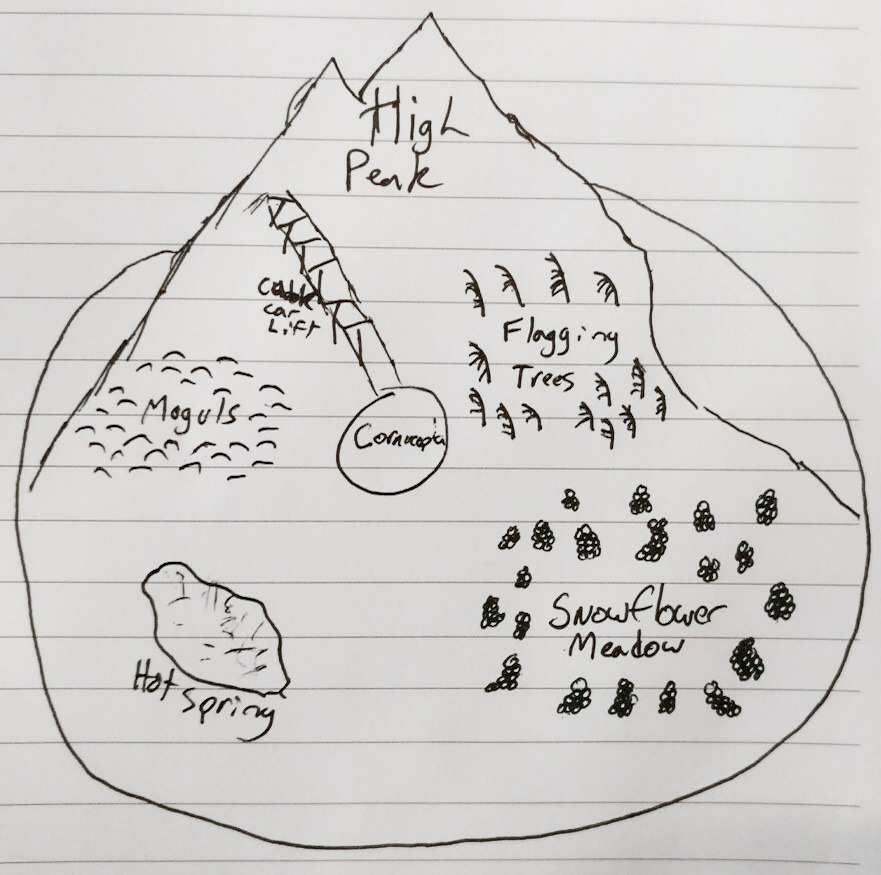 High
Peak
Cable
car
Lift
Flagging
Trees
Moguls
Cornucopia
Snowflower
Meadow
Hot
Spring